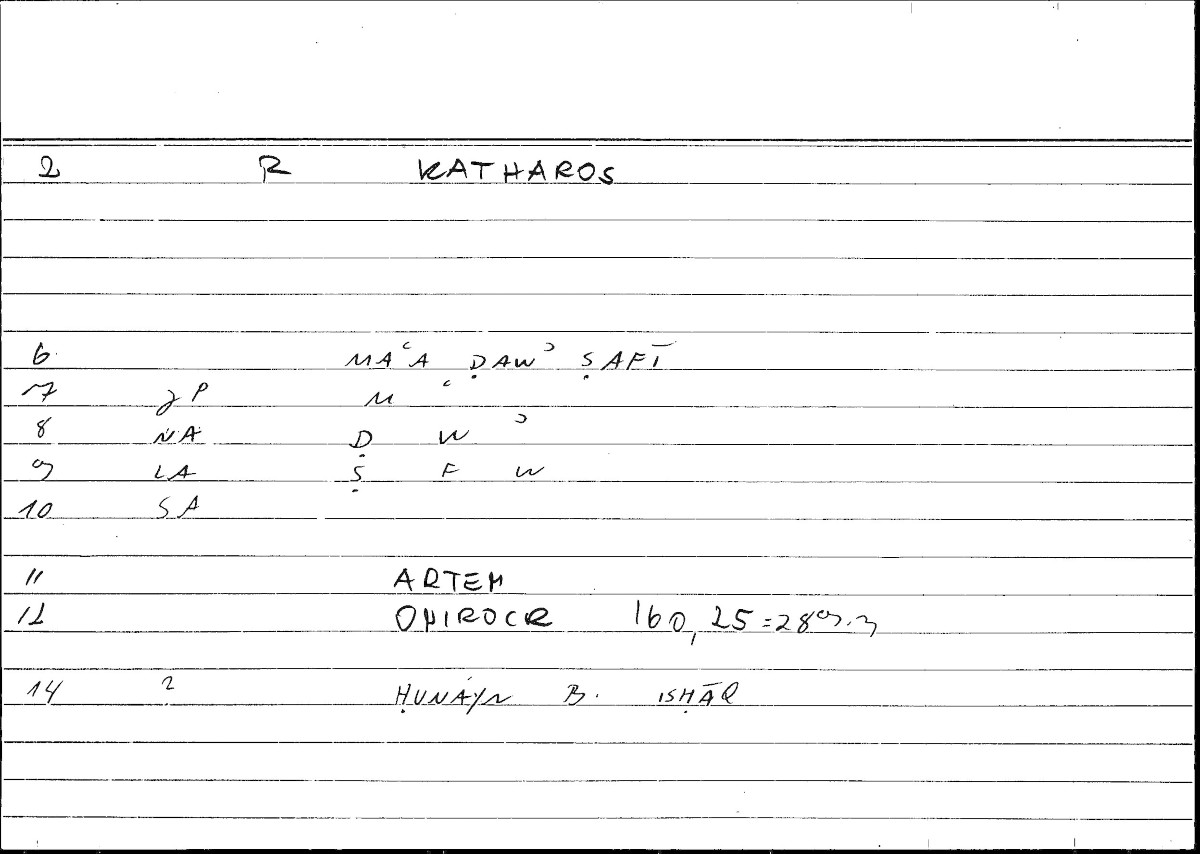 2 R KATHAROS
6 MAʿA ḌAWʾ ṢAFĪ
7 JP M ʿ
8 NA Ḍ W ʾ
9 LA Ṣ F W
10 SA
11 ARTEM
12 ONIROCR 160, 25=289.3
14 2 ḤUNAYN B. ISḤĀQ